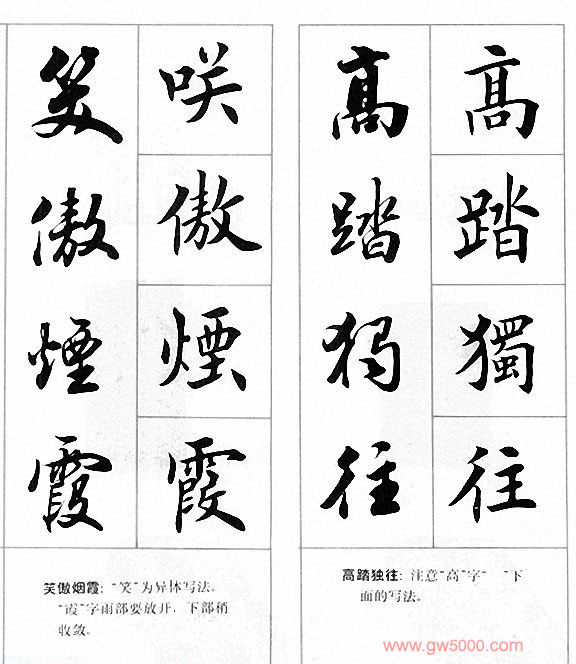 高踏獨往
高踏独往
笑傲煙霞
笑傲煙霞
高踏独往：注意“高”字“下
面的写法。
笑傲烟霞：“笑”为异体写法。
“霞”字雨部要放开，下部稍
收敛。
www.gw5000.com